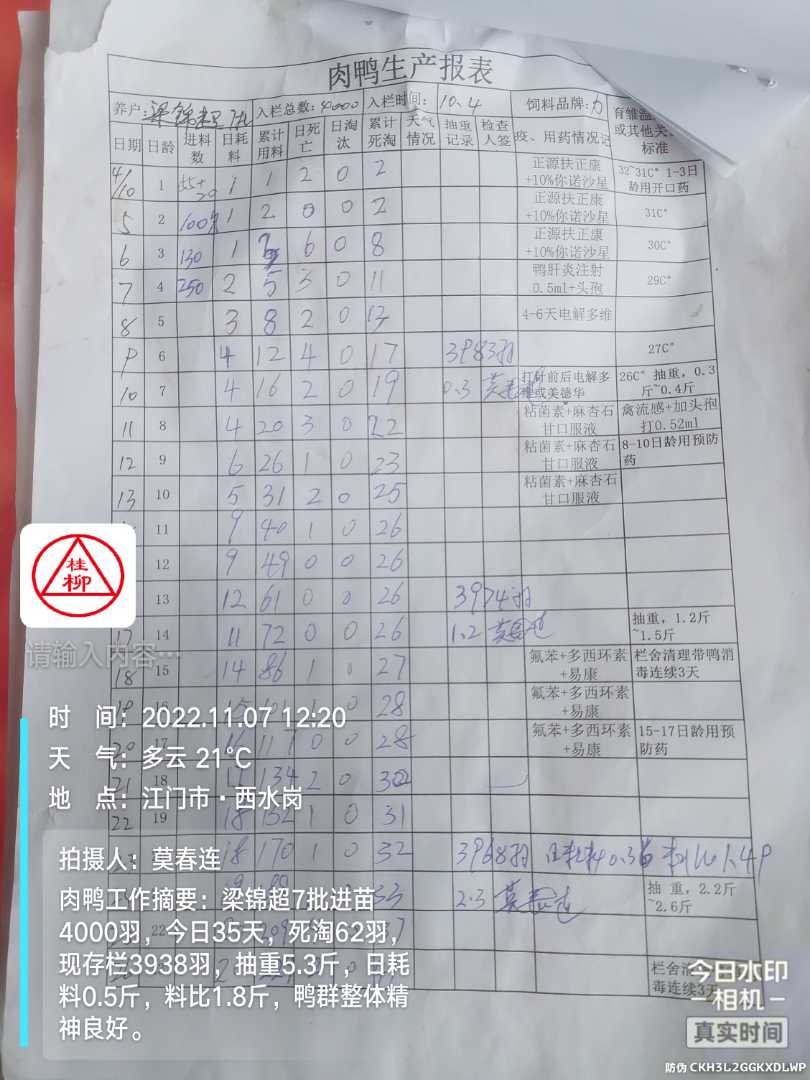 肉鸭生产报表
养户: 梁锦超 入栏总数: 40000 入栏时间: 10.4 饲料品牌: 力 育雏温
日期 日龄 进料数 日耗料 累计用料 日死亡 日淘汰 累计死淘 天气情况 抽重记录 检查人签 疫、用药情况记 或其他关 标准
4/10 1 55+20 1 1 2 0 2 正源扶正康+10%你诺沙星 32~31C° 1-3日龄用开口药
5 2 100 1 2 0 0 2 正源扶正康+10%你诺沙星 31C°
6 3 130 1 3 6 0 8 正源扶正康+10%你诺沙星 30C°
7 4 250 2 5 3 0 11 鸭肝炎注射0.5ml+头孢 29C°
8 5 3 8 2 0 13 4-6天电解多维
9 6 4 12 4 0 17 3983羽 27C°
10 7 4 16 2 0 19 0.3 莫春连 打针前后电解多维或美德华 26C° 抽重，0.3斤~0.4斤
11 8 4 20 3 0 22 粘菌素+麻杏石甘口服液 禽流感+加头孢打0.52ml
12 9 6 26 1 0 23 粘菌素+麻杏石甘口服液 8-10日龄用预防药
13 10 5 31 2 0 25 粘菌素+麻杏石甘口服液
11 9 40 1 0 26
12 9 49 0 0 26
13 12 61 0 0 26 3974羽
17 14 11 72 0 0 26 1.2 莫春连 抽重，1.2斤~1.5斤
18 15 14 86 1 0 27 氟苯+多西环素+易康 栏舍清理带鸭消毒连续3天
19 16 15 101 1 0 28 氟苯+多西环素+易康
20 17 16 117 0 0 28 氟苯+多西环素+易康 15-17日龄用预防药
21 18 134 2 0 30
22 19 18 152 1 0 31
18 170 1 0 32 3968羽 日耗料0.3
33 2.3 莫春连 抽 重，2.2斤~2.6斤
22 209
栏舍清 毒连续3天
桂柳
请输入内容…
时 间: 2022.11.07 12:20
天 气: 多云 21°C
地 点: 江门市·西水岗
拍摄人: 莫春连
肉鸭工作摘要: 梁锦超7批进苗
4000羽，今日35天，死淘62羽，
现存栏3938羽，抽重5.3斤，日耗
料0.5斤，料比1.8斤，鸭群整体精
神良好。
今日水印
相机
真实时间
防伪 CKH3L2GGKXDLWP